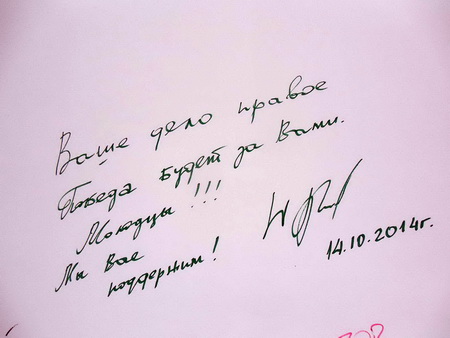 Ваше дело правое
Победа Будет за Вами.
Молодцы !!!
Мы Вас
поддержим !
14.10.2014г.